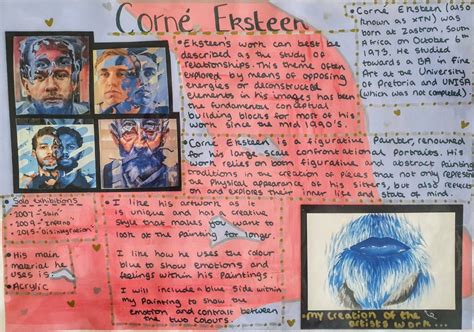 Corné Eksteen
• Eksteen's work can best be
described as the study of
relationships. This theme often
explored by means of opposing
energies or deconstructed
elements in his images has been
the fundamental conceptual
building blocks for most of his
work since the mid 1990's.
• Corné Eksteen (also
known as XTN) was
born at Zastron, South
Africa on October 6th
1973. He studied
towards a BA in Fine
Art at the University
of Pretoria and UNISA
(which was not completed)
• Corné Eksteen is a figurative Painter, renowned
for his large scale confrontational portraits. His
work relies on both figurative and abstract Painting
traditions in the creation of pieces that not only represent
the Physical appearance of his sitters, but also
on and explores their inner life and state of mind.
• Solo Exhibitions
2007 - "Skin"
2009 -
2015 - Disintegration
• His main
material he
uses is:
• Acrylic
• I like his artwork as it
is unique and has a creative
style that makes you want to
look at the painting for longer.
• I like how he uses the colour
blue to show emotions and
feelings within his paintings.
• I will include a blue side within
my Painting to show the
emotion and contrast between
the two colours.
• my creation of the
artists work...